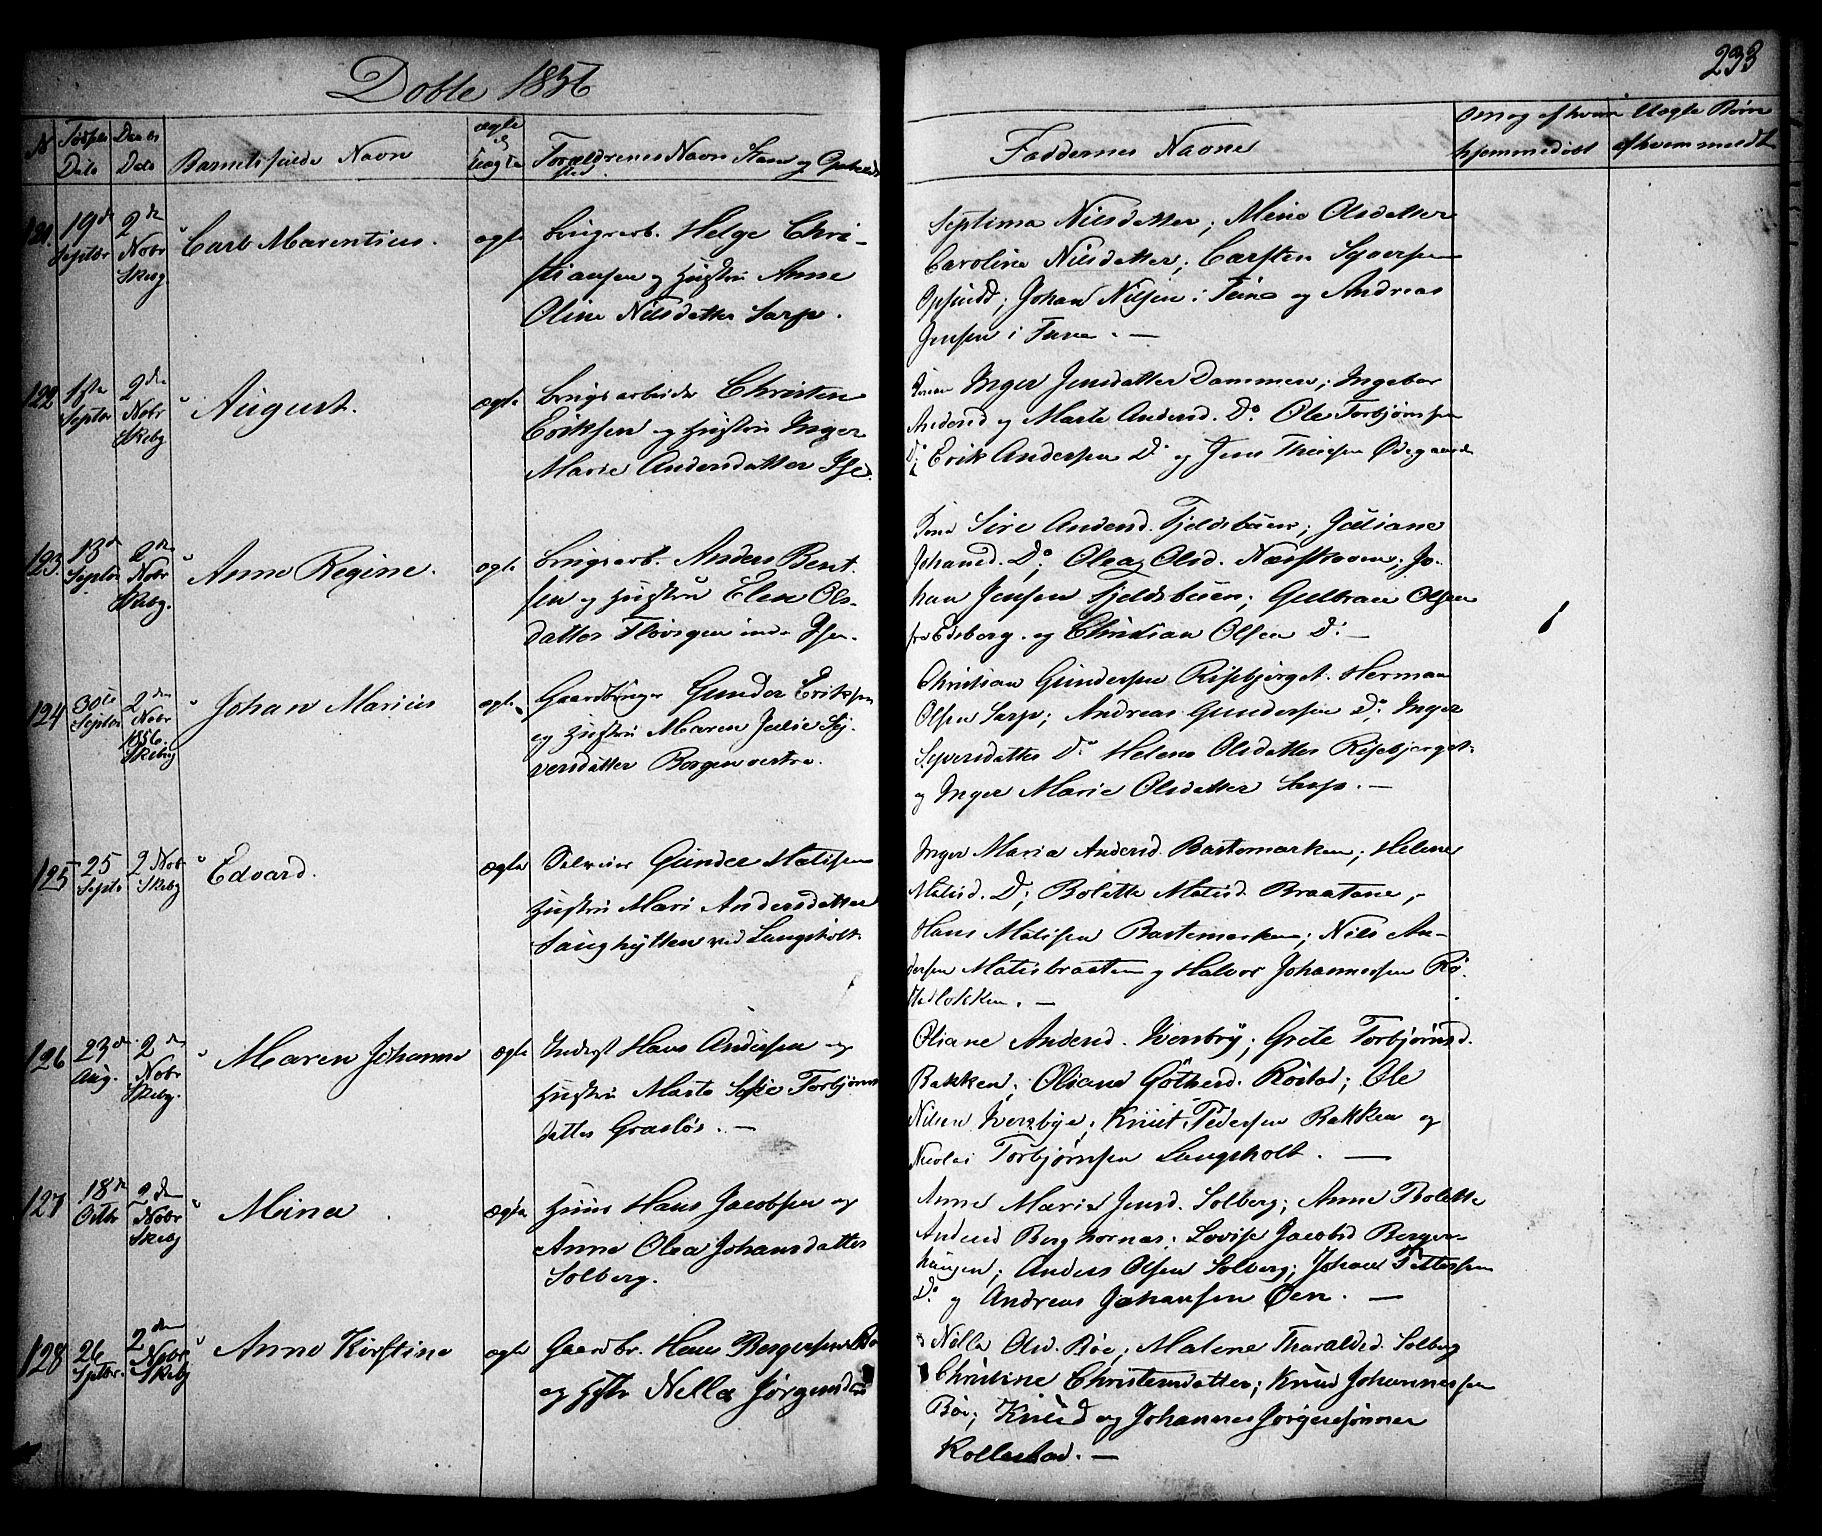 Døbte 1856
233
N
Fødsels
Dato
Daabs
Dato
Barnets fulde Navn
ægte
Uægte
Forældrenes Navn Stan og
Faddernes Navne
Om og af hvem
hjemmedøbt
Uægte Børn
af hvem meldt
121. 19de Septbr 2den Nobr Skeby
Carl Marentius.
ægte
Brugsarb. Helge Chri-
stiansen og Hustru Anne
Oline Nilsdatter Sarp.
Septima Nilsdatter, Mina Olsdatter
Caroline Nilsdatter; Carsten Syversen
Opsund; Johan Nilsen i Tune og Andreas
Jensen i Tune. —
122 18de Septbr 2den Nobr Skeby
August.
ægte
Brugsarbeider Christen
Eriksen og Hustru Inger
Marie Andersdatter Ise.
Inger Jensdatter Dammen; Ingebor
Andersd og Marte Andersd. Do Ole Torbjørnsen
Do; Erik Andersen Do og Jens Ødegaarde
123 13de Septbr 2den Nobr Skeby.
Anne Regine.
ægte
Brugsarb. Anders Bent
sen og Hustru Elen Ols-
datter Isen.
Kone Sire Andersd. Fjeldsbøen; Juliane
Johansd. Do; Olea Olsd. Næsskoven; Jo-
han Jensen Fjeldsbøen; Gulbran Olsen
fra Edsberg. og Christian Olsen Do —
124 30te Septbr 2den Nobr 1856. Skeby
Johan Marius
ægte
Gaardbruger Gunder Eriksen
og Hustru Maren Julie Sy-
versdatter Borgen vestre.
Christian Gundersen Risebjerget. Herman
Olsen Sarp; Andreas Gundersen Do; Inger
Syversdatter Do Helene Olsdatter Risebjerget.
og Inger Marie Olsdatter Sarp. —
125 25 Septb 2 Nob Skeby
Edvard.
ægte
Selveier Gunder Matisen
Hustru Mari Andersdatter
Saughytten ved Langsholt
Inger Maria Andersd. Bastemarken; Helene
Matisd. Do; Bolette Matisd. Braatane,
Hans Matisen Bastemarken; Nils An-
dersen Matisbraaten og Halvor Johannessen Rø-
løkken. —
126 23de Aug. 2den Nobr Skeby.
Maren Johanne
ægte
Inderst Hans Andersen og
Hustru Marte Sofie Torbjørns
datter Graslos. —
Oliane Andersd. Iversby; Grete Torbjørnsd.
Bakken; Oliane Røstad; Ole
Nilsen Iversbye; Knut Pedersen Bakken og
Nicolai Torbjørnsen Langsholt. —
127 18de Octbr 2den Nobr Skeby
Mina
ægte
Huus Hans Jacobsen og
Anne Olea Johansdatter
Solberg.
Anne Maria Jensd. Solberg; Anne Bolette
Andersd Berghornas; Lovise Jacobsd Berger-
haugen; Anders Olsen Solberg; Johan Pettersen
Do. og Andreas Johansen Øen. —
128 26 Septbr. 2den Nobr Skeby
Anne Kirstine
ægte
Gaardbr. Hans Bergersen Bø
og Hustr Nella
Nella Olsd. Bøe; Malene Tharaldsd. Solberg
Christine Christensdatter; Knud Johannessen
Bøe; Knud og Johannes Jørgensønner
Kollestad. —